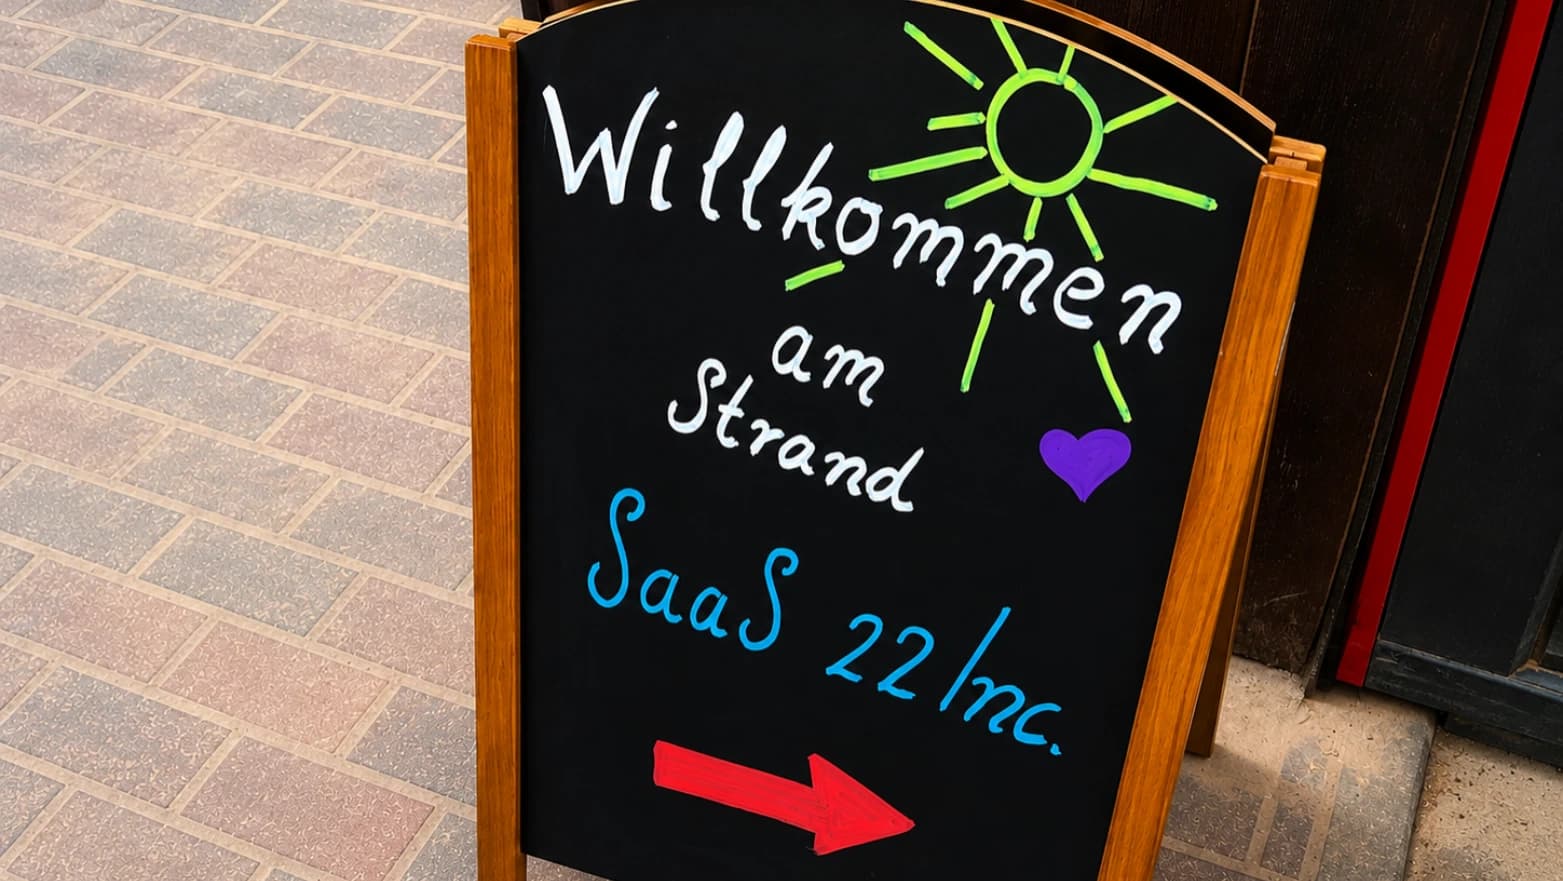 Willkommen
am
Strand
SaaS 22 Inc.